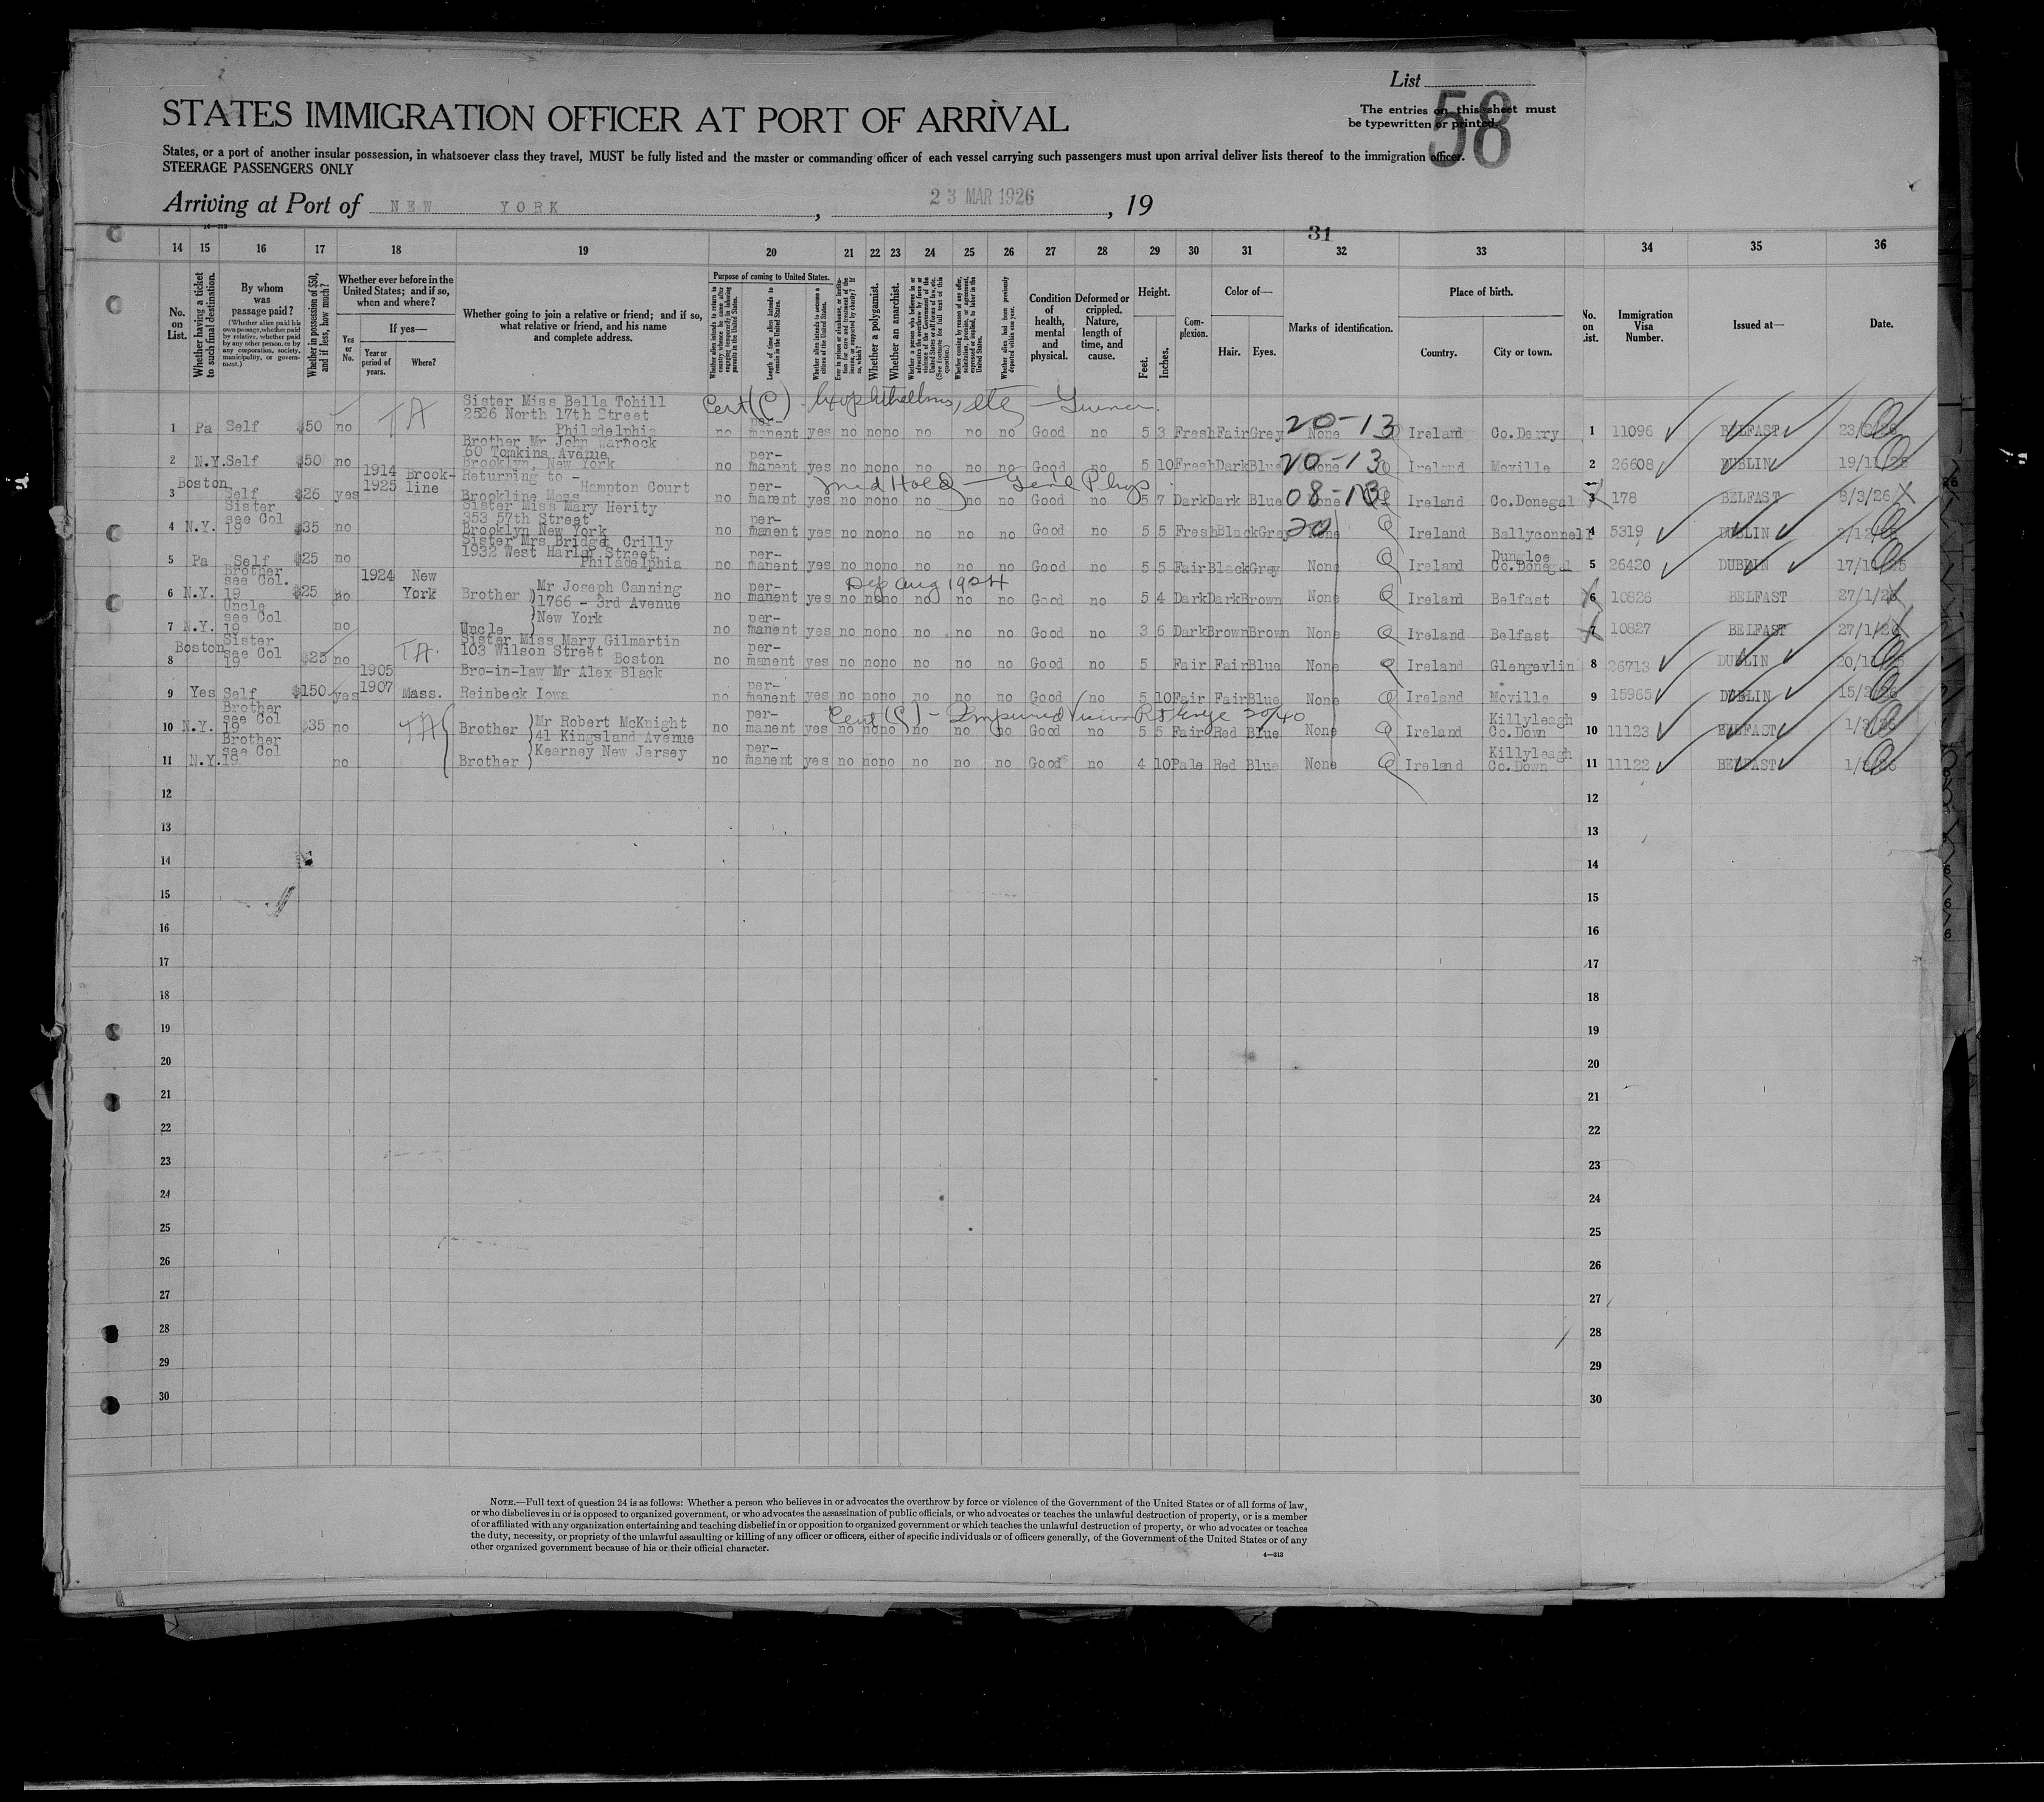 List
58
STATES IMMIGRATION OFFICER AT PORT OF ARRIVAL
The entries on this sheet must
be typewritten or printed.
States, or a port of another insular possession, in whatsoever class they travel, MUST be fully listed and the master or commanding officer of each vessel carrying such passengers must upon arrival deliver lists thereof to the immigration officer.
STEERAGE PASSENGERS ONLY
Arriving at Port of NEW YORK , 23 MAR 1926 , 19
31
14 15 16 17 18 19 20 21 22 23 24 25 26 27 28 29 30 31 32 33 34 35 36
No. on List.
Whether having a ticket to such final destination.
By whom was passage paid?
(Whether alien paid his own passage, whether paid by relative, whether paid by any other person, or by any corporation, society, municipality, or government.)
Whether in possession of $50, and if less, how much?
Whether ever before in the United States; and if so, when and where?
Yes or No.
If yes—
Year or period of years.
Where?
Whether going to join a relative or friend; and if so, what relative or friend, and his name and complete address.
Purpose of coming to United States.
Length of time alien intends to remain in the United States.
Whether alien intends to become a citizen of the United States.
Whether a polygamist.
Whether an anarchist.
Whether alien had been previously deported within one year.
Condition of health, mental and physical.
Deformed or crippled. Nature, length of time, and cause.
Height.
Feet.
Inches.
Complexion.
Color of—
Hair.
Eyes.
Marks of identification.
Place of birth.
Country.
City or town.
No. on List.
Immigration Visa Number.
Issued at—
Date.
Cert (C)
Sister Miss Bella Tohill
2526 North 17th Street
Philadelphia
1 Pa Self $50 no TA no permanent yes no no no no no no Good no 5 3 Fresh Fair Grey None 20-13 Ireland Co.Derry 1 11096 BELFAST
Brother Mr John Warnock
60 Tomkins Avenue
Brooklyn, New York
2 N.Y. Self $50 no no permanent yes no no no no no no Good no 5 10 Fresh Dark Blue None 20-13 Ireland Moville 2 26608 DUBLIN
Med Hold
Returning to - Hampton Court
Brookline Mass
3 Boston Self $26 yes 1914 1925 Brookline no permanent yes no no no no no no Good no 5 7 Dark Dark Blue None Ireland Co.Donegal 3 178 BELFAST 8/3/26
Sister Miss Mary Herity
353 57th Street
Brooklyn New York
4 N.Y. Sister see Col 19 $35 no no permanent yes no no no no no no Good no 5 5 Fresh Black Grey None 20 Ireland Ballyconnell 4 5319 DUBLIN
Sister Mrs Bridget Crilly
1932 West Harlan Street
Philadelphia
5 Pa Self $25 no no permanent yes no no no no no no Good no 5 5 Fair Black Grey None Ireland Dungloe Co.Donegal 5 26420 DUBLIN
Dep Aug 1924
6 N.Y. Brother see Col. 19 $25 no 1924 New York Brother Mr Joseph Canning no permanent yes no no no no no no Good no 5 4 Dark Dark Brown None Ireland Belfast 6 10826 BELFAST 27/1/26
1766 - 3rd Avenue
New York
7 N.Y. Uncle see Col 19 no Uncle no permanent yes no no no no no no Good no 3 6 Dark Brown Brown None Ireland Belfast 7 10827 BELFAST 27/1/26
Sister Miss Mary Gilmartin
103 Wilson Street
Boston
8 Boston Sister see Col 19 $25 no TA. no permanent yes no no no no no no Good no 5 Fair Fair Blue None Ireland Glengevlin 8 26713 DUBLIN
Bro-in-law Mr Alex Black
Reinbeck Iowa
9 Yes Self $150 yes 1905 1907 Mass. no permanent yes no no no no no no Good no 5 10 Fair Fair Blue None Ireland Moville 9 15965 DUBLIN
Impaired Vision 20/40
10 N.Y. Brother see Col 19 $35 no TA Brother Mr Robert McKnight no permanent yes no no no no no no Good no 5 5 Fair Red Blue None Ireland Killyleagh Co.Down 10 11123 BELFAST
41 Kingsland Avenue
Kearney New Jersey
11 N.Y. Brother see Col 19 no Brother no permanent yes no no no no no no Good no 4 10 Pale Red Blue None Ireland Killyleagh Co.Down 11 11122 BELFAST
12 12
13 13
14 14
15 15
16 16
17 17
18 18
19 19
20 20
21 21
22 22
23 23
24 24
25 25
26 26
27 27
28 28
29 29
30 30
NOTE.—Full text of question 24 is as follows: Whether a person who believes in or advocates the overthrow by force or violence of the Government of the United States or of all forms of law,
or who disbelieves in or is opposed to organized government, or who advocates the assassination of public officials, or who advocates or teaches the unlawful destruction of property, or is a member
of or affiliated with any organization entertaining and teaching disbelief in or opposition to organized government or which teaches the unlawful destruction of property, or who advocates or teaches
the duty, necessity, or propriety of the unlawful assaulting or killing of any officer or officers, either of specific individuals or of officers generally, of the Government of the United States or of any
other organized government because of his or their official character.
4—313